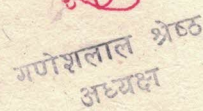 गणेशलाल श्रेष्ठ
अध्यक्ष